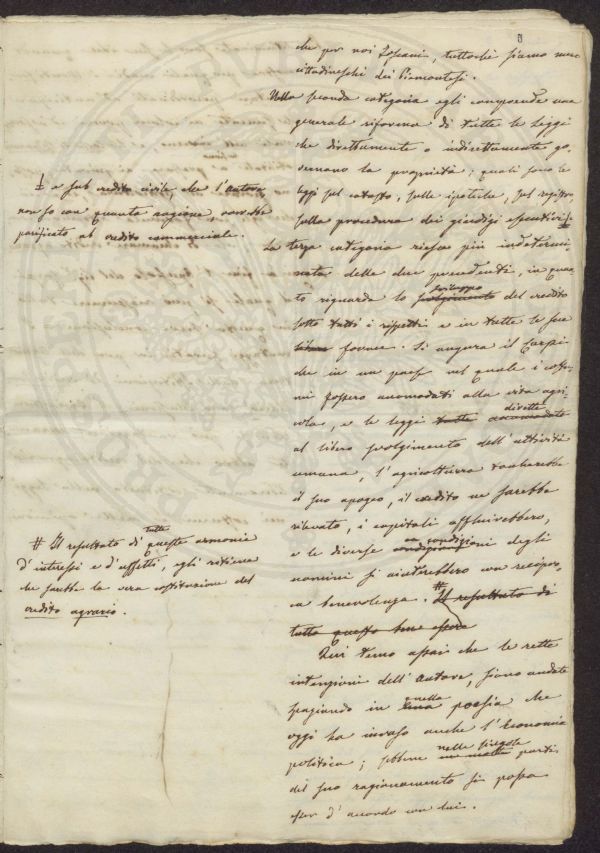 5
che per noi Toscani, tuttochè siamo men
cittadineschi dei Piemontesi.
Nella seconda categoria egli comprende una
generale riforma di tutte le leggi
che direttamente o indirettamente go-
vernano la proprietà; quali sono le
leggi sul catasto, sulle ipoteche, sul registro
sulla procedura dei giudizi esecutivi
e sul credito civile, che l'autore,
non so con quanta ragione, vorrebbe
parificato al credito commerciale.
La terza categoria riesce più indetermi-
nata delle due precedenti, in quan-
to riguarda lo svolgimento sviluppo del credito
sotto tutti i rispetti e in tutte le sue
forme. Si augura il
che in un paese nel quale i costu-
mi fossero accomodati alla vita agri-
cola, e le leggi tutte accomodate dirette
al libero svolgimento dell'attività
umana, l'agricoltura toccherebbe
il suo apogeo, il credito ne sarebbe
rilevato, i capitali affluirebbero,
e le diverse condizioni degli
uomini si aiuterebbero con recipro-
ca benevolenza. # Il resultato di
tutto questo bene
# Il resultato di tutte queste armonie
d'interessi e d'affetti, egli ritiene
che sarebbe la vera costituzione del
credito agrario.
Qui temo assai che le rette
intenzioni dell'autore, siano andate
spaziando in quella poesia che
oggi ha invaso anche l'Economia
politica; sebbene in molte nelle singole parti
del suo ragionamento si possa
esser d'accordo con lui.